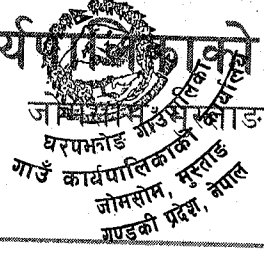 र्यपालिकाको
जोमसोम, मुस्ताङ
घरपझोङ गाउँपालिका
गाउँ कार्यपालिकाको कार्यालय
जोमसोम, मुस्ताङ
गण्डकी प्रदेश, नेपाल